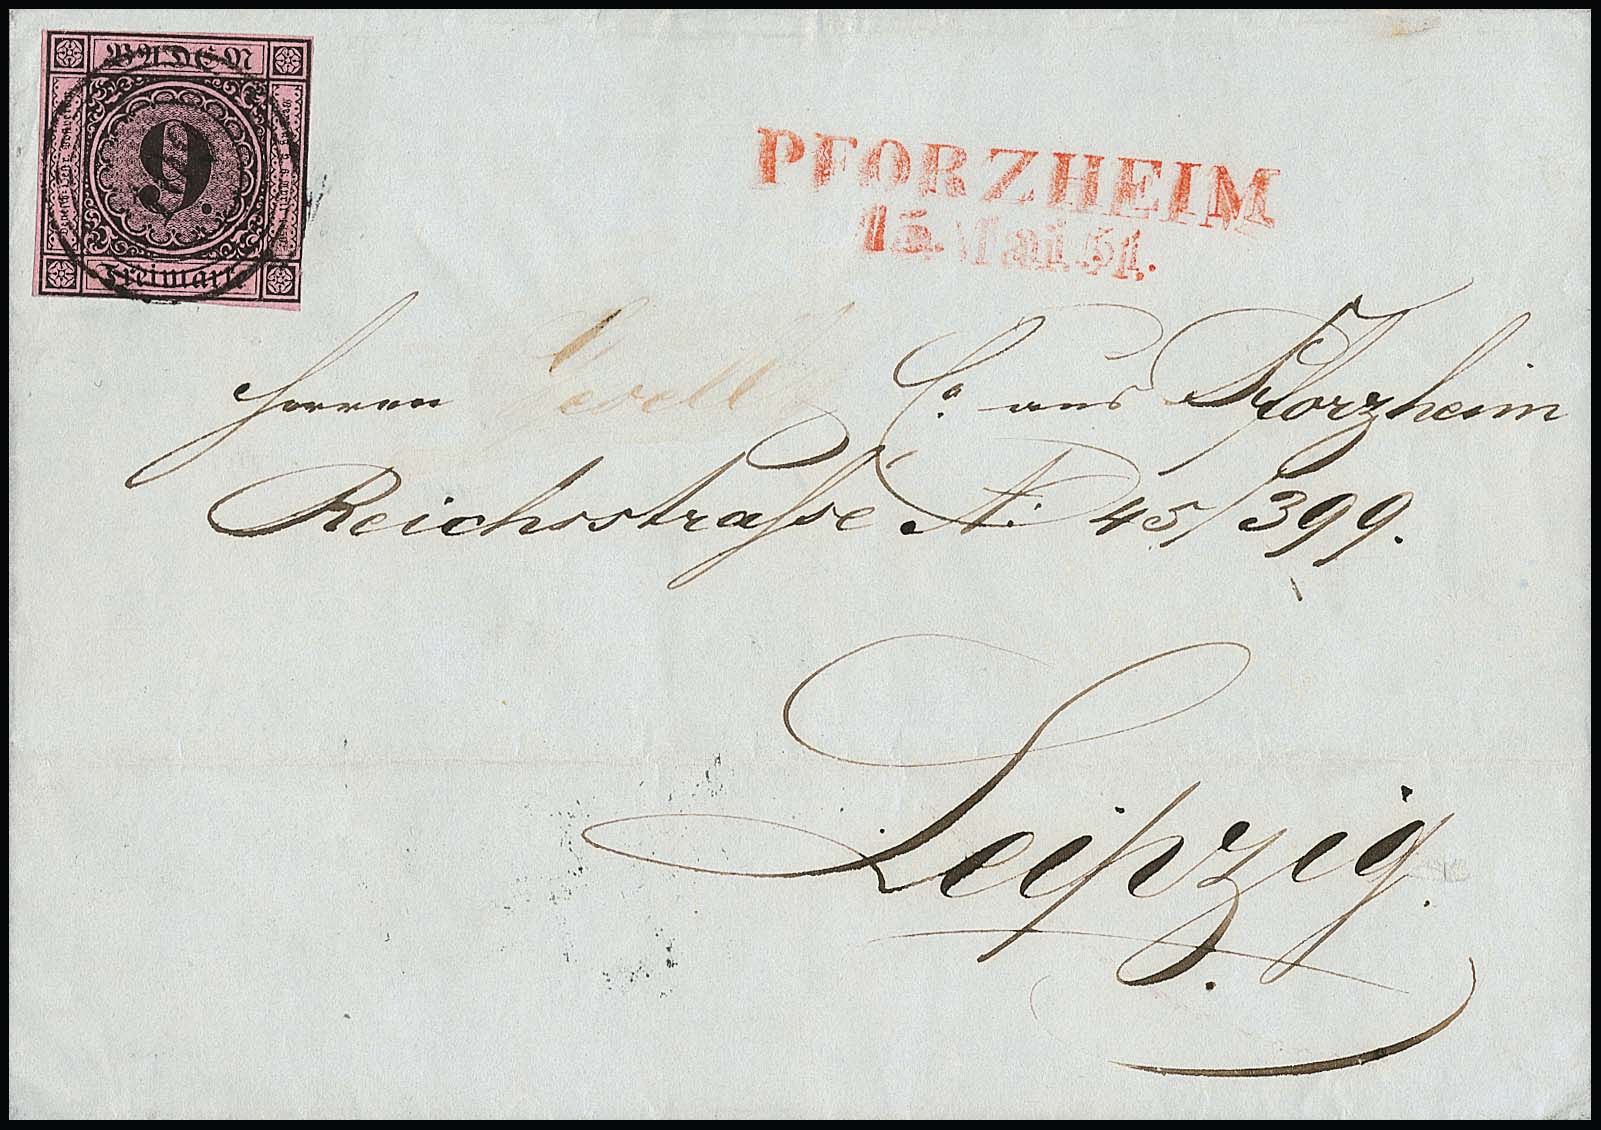 BADEN
9.
Freimarke
PFORZHEIM
15. Mai 51.
Herren & Co aus Pforzheim
Reichsstraße No: 45/399.
Leipzig.